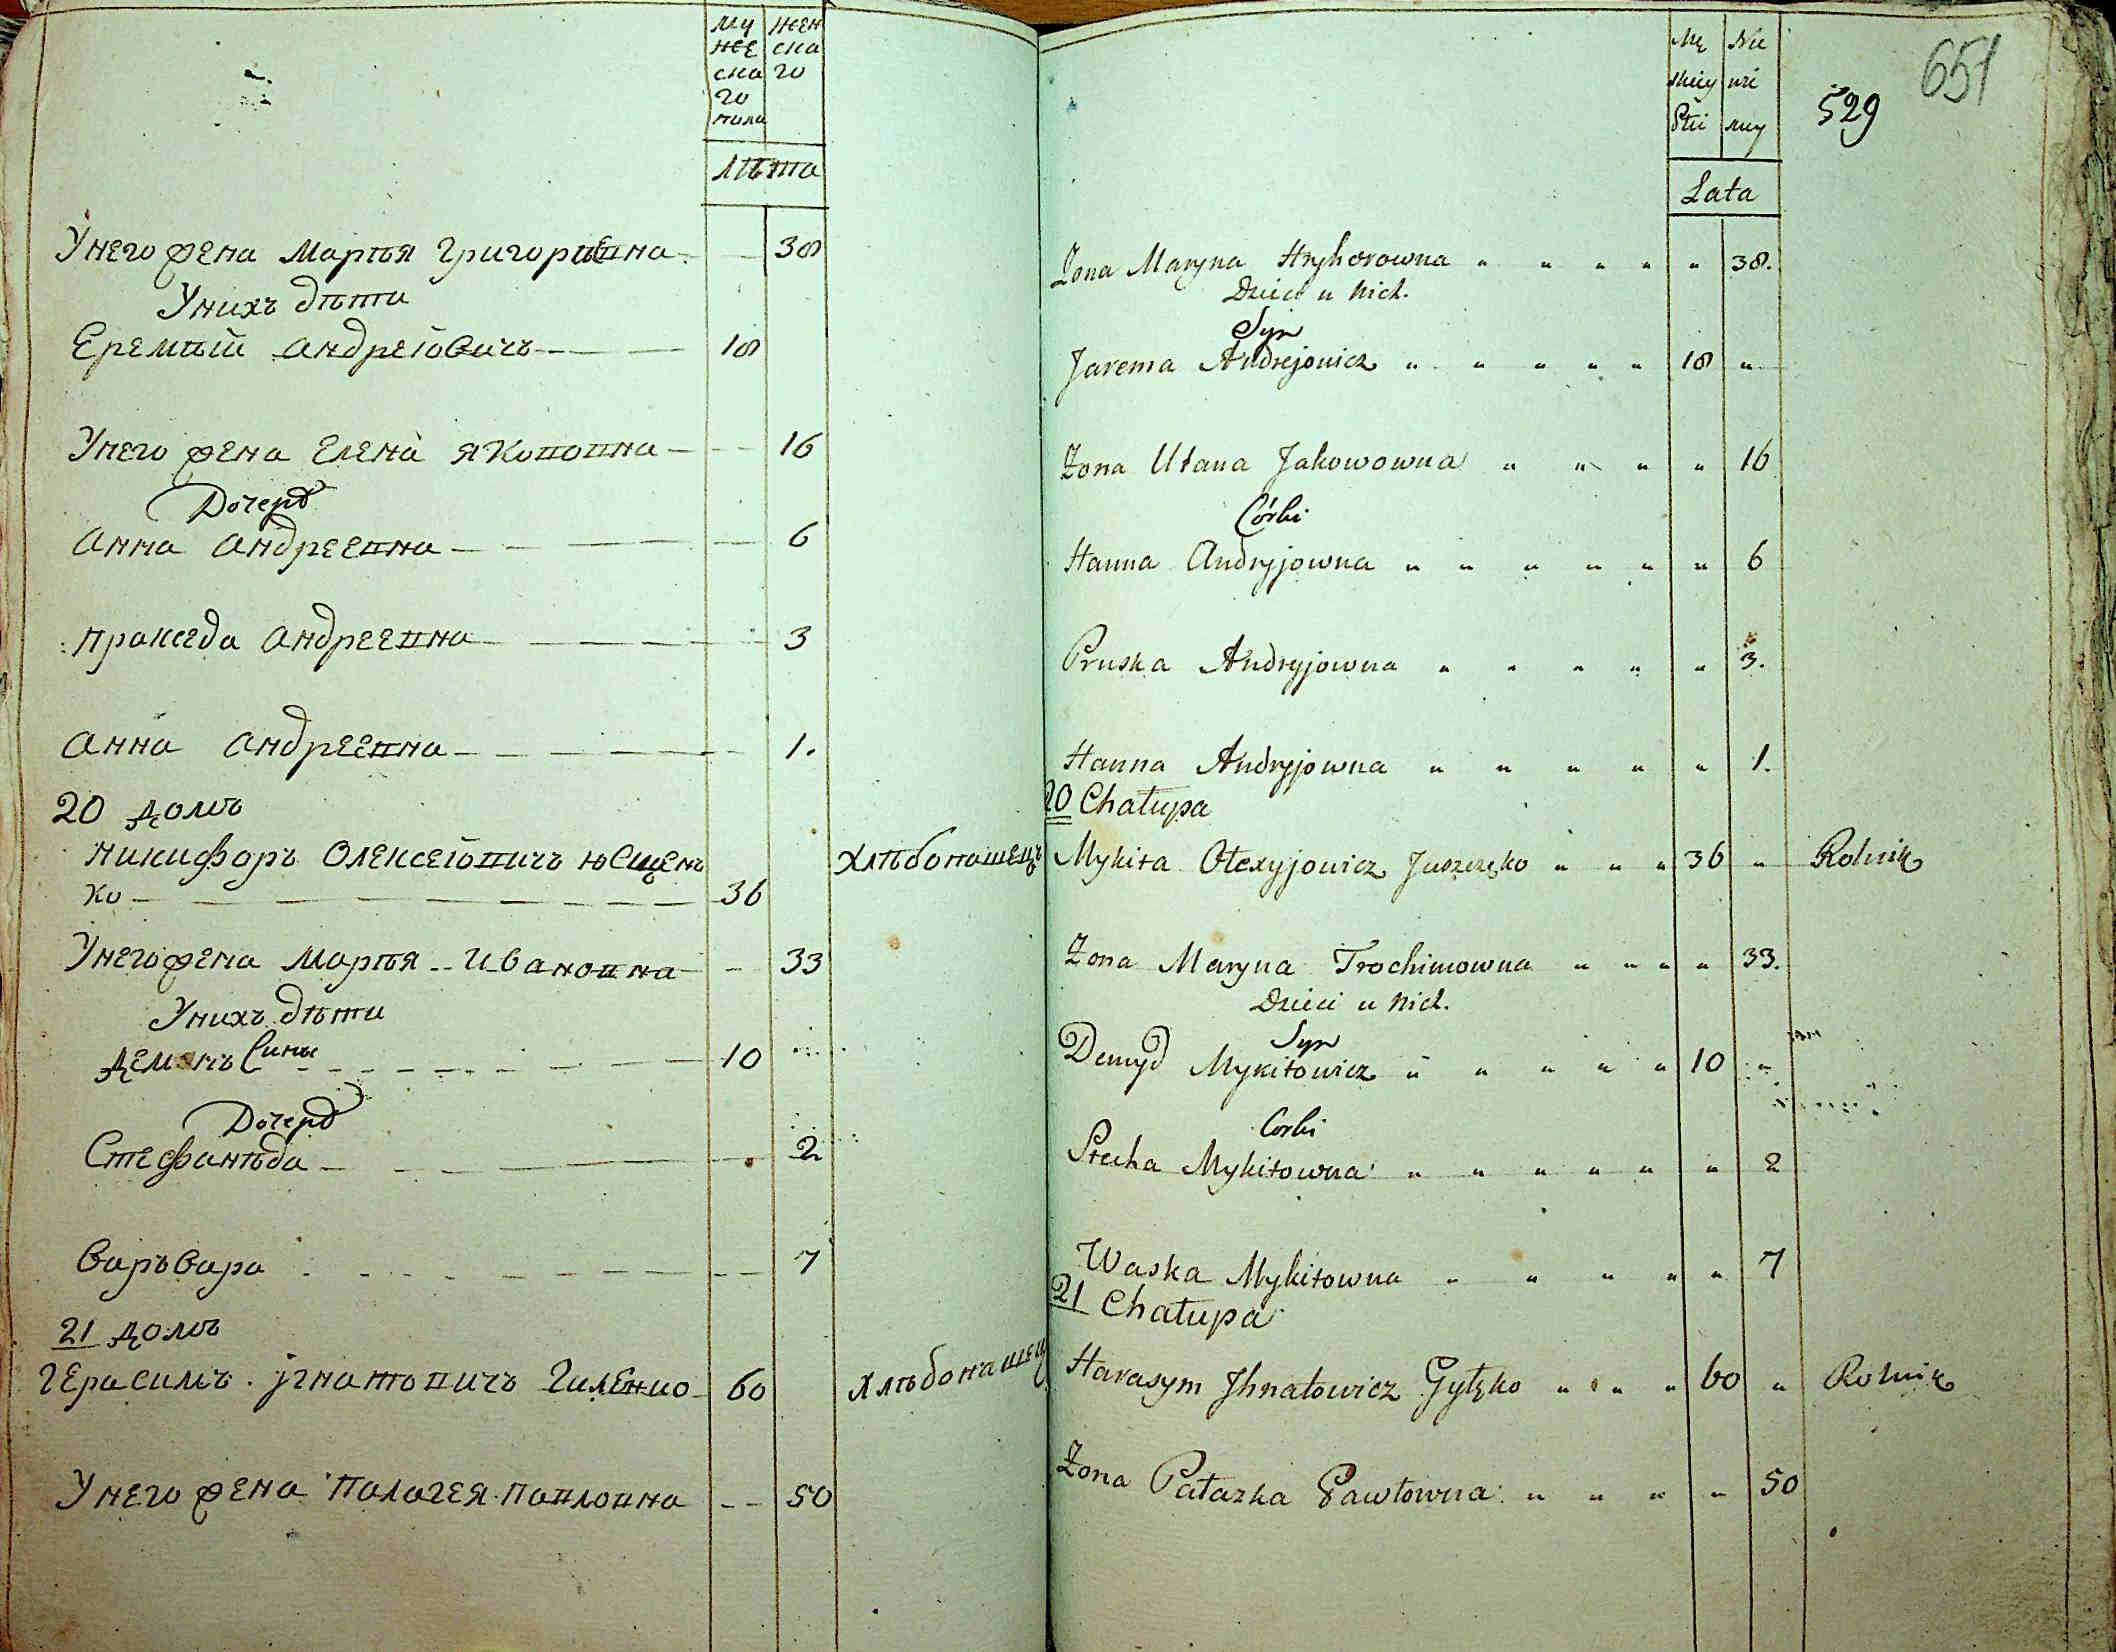 му
жее
ска
го
пола
жен
ска
го
лѣта
Унего жена Марѣя Григорьевна 38
Унихъ дѣти
Еремѣй Андреіовичъ 18
Унего жена Елена Якововна 16
Дочерѣ
Анна Андреевна 6
Пракседа Андреевна 3
Анна Андреевна 1.
20 домъ
Никифоръ Олексеіовичъ Ющен
ко 36 хлѣбопашецъ
Унего жена Марѣя Ивановна 33
Унихъ дѣти
Сины
Демянъ 10
Дочерѣ
Стефанѣда 2
Варъвара 7
21 домъ
Герасимъ Ігнатовичъ Гиленко 60 хлѣбопашец
Унего жена Палагея Павловна 50
651
529
Mę
skiey
Płci
Nie
wie
sciey
Lata
Żona Maryna Hryhorowna " " " " " 38.
Dzieci u Nich.
Syn
Jarema Andrejowicz " " " " " 18 "
Żona Ulana Jakowowna " " " " 16
Córki
Hanna Andryjowna " " " " " " 6
Pruska Andryjowna " " " " " 3.
Hanna Andryjowna " " " " " 1.
20 Chałupa
Mykita Ołexyjowicz Juszczęko " " " 36 " Rolnik
Żona Maryna Trochimowna " " " " 33.
Dzieci u Nich.
Syn
Demyd Mykitowicz " " " " " 10 "
Corki
Stecha Mykitowna " " " " " " 2
Waska Mykitowna " " " " " 7
21 Chałupa
Harasym Ihnatowicz Gylęko " " " 60 " Rolnik
Żona Pałazka Pawłowna " " " " 50